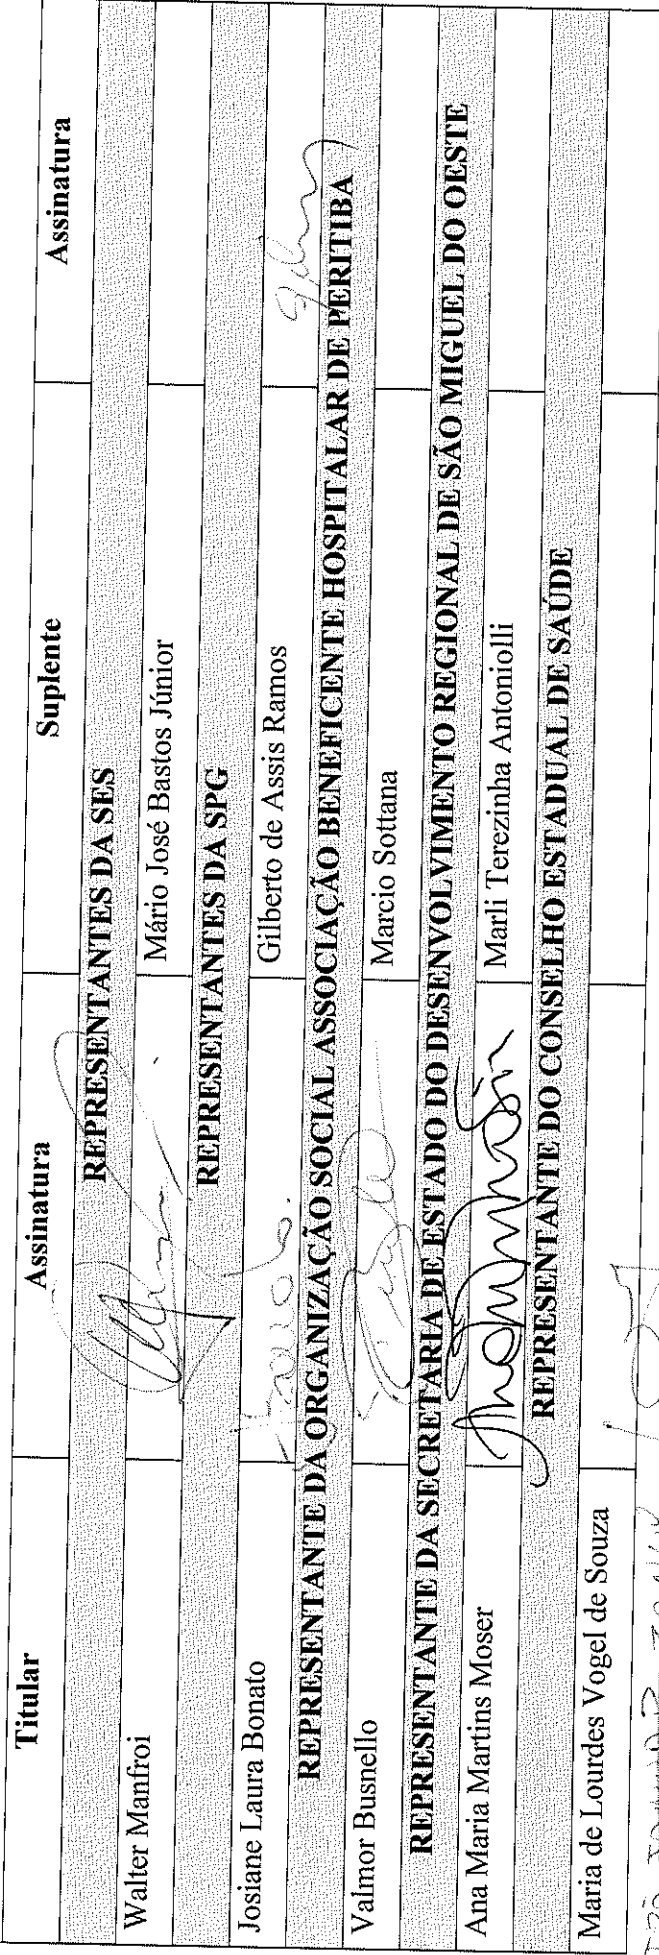 Titular Assinatura Suplente Assinatura
REPRESENTANTES DA SES
Walter Manfroi Mário José Bastos Júnior
REPRESENTANTES DA SPG
Josiane Laura Bonato Gilberto de Assis Ramos
REPRESENTANTE DA ORGANIZAÇÃO SOCIAL ASSOCIAÇÃO BENEFICENTE HOSPITALAR DE PERITIBA
Valmor Busnello Marcio Sottana
REPRESENTANTE DA SECRETARIA DE ESTADO DO DESENVOLVIMENTO REGIONAL DE SÃO MIGUEL DO OESTE
Ana Maria Martins Moser Marli Terezinha Antoniolli
REPRESENTANTE DO CONSELHO ESTADUAL DE SAÚDE
Maria de Lourdes Vogel de Souza